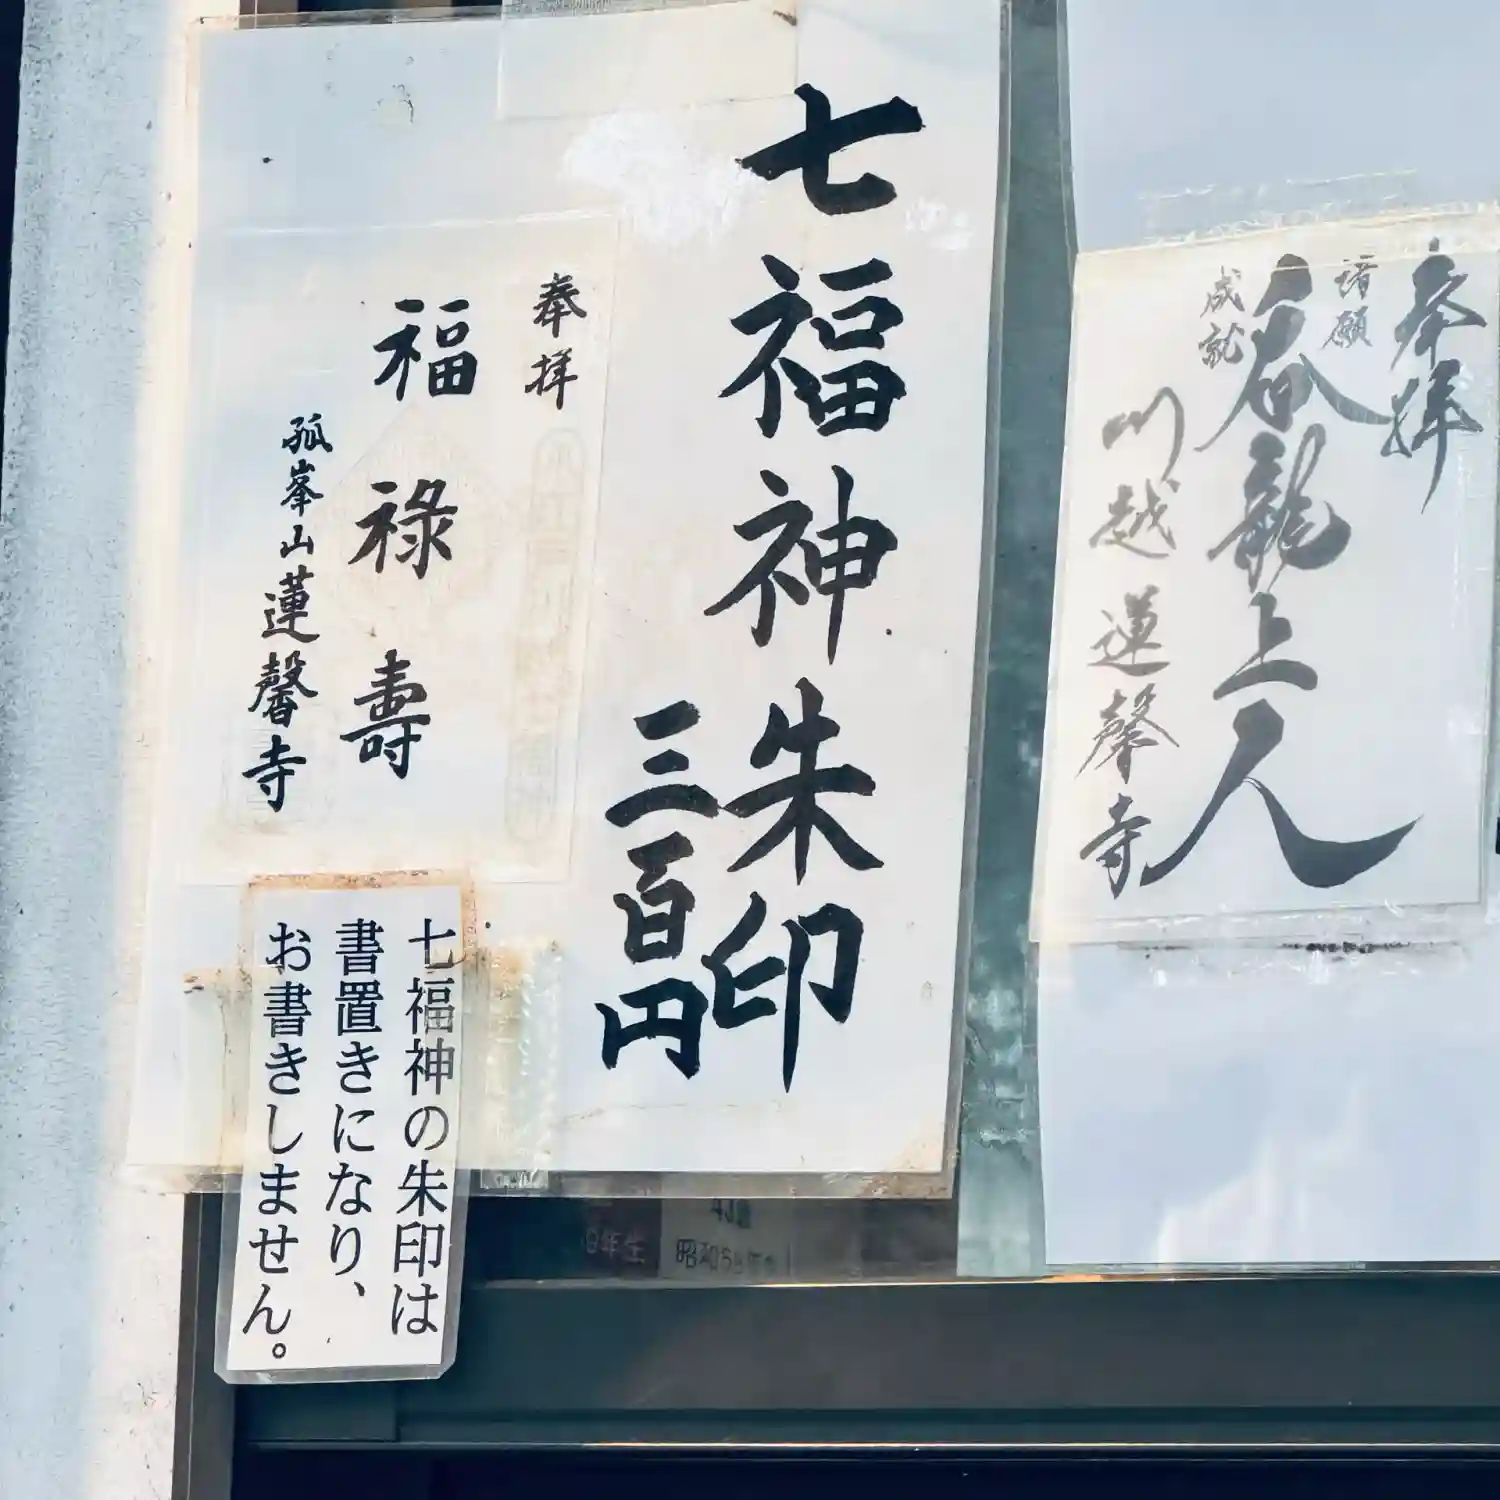 奉拝
諸願
成就
呑龍上人
川越蓮馨寺
七福神朱印
三百円
奉拝
福禄壽
孤峯山蓮馨寺
七福神の朱印は
書置きになり、
お書きしません。